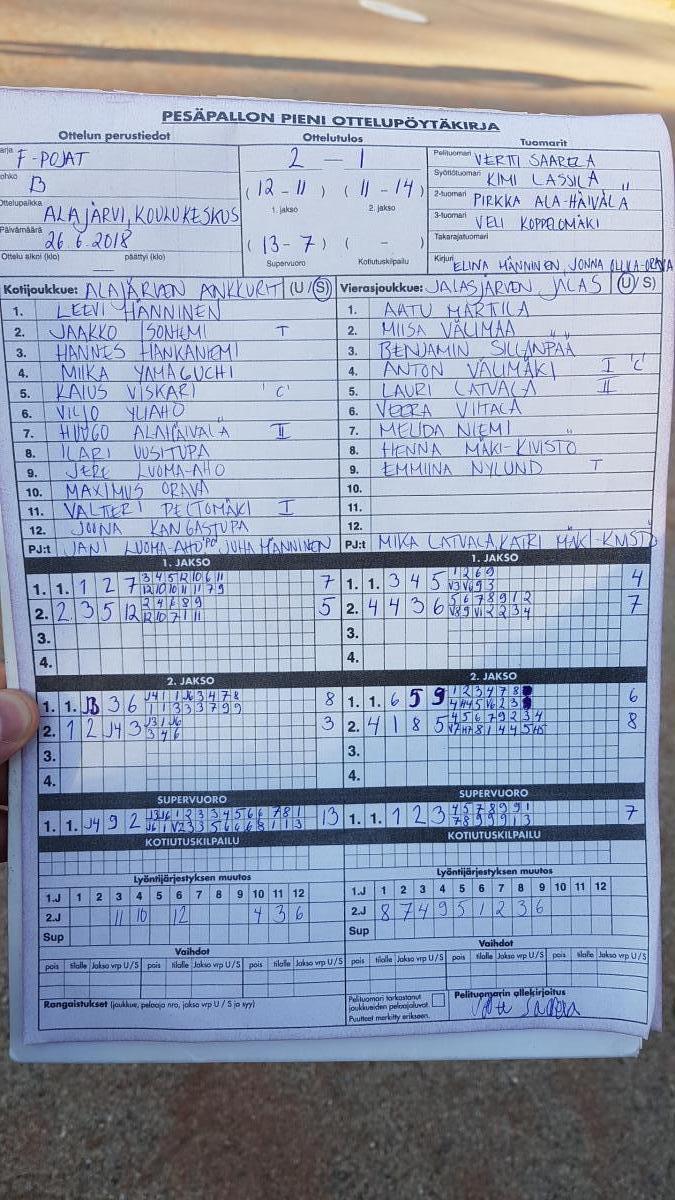 PESÄPALLON PIENI OTTELUPÖYTÄKIRJA
Ottelun perustiedot Ottelutulos Tuomarit
F-POJAT
B
Ottelupaikka ALAJÄRVI, KOULUKESKUS
Päivämäärä 26.6.2018
Ottelu alkoi (klo) päättyi (klo)
2 – 1
(12 – 11) (11 – 14)
1. jakso 2. jakso
(13 – 7) ( – )
Supervuoro Kotiutuskilpailu
Pelituomari VERTTI SAARELA
Syöttötuomari KIMI LASSILA
2-tuomari PIRKKA ALA-HÄIVÄLÄ
3-tuomari VELI KOPPELOMÄKI
Takarajatuomari
Kirjuri ELINA HÄNNINEN, JONNA
Kotijoukkue: ALAJÄRVEN ANKKURIT (U/S)
1. LEEVI HÄNNINEN
2. JAAKKO ISONIEMI T
3. HANNES HANKANIEMI
4. MIIKA YAMAGUCHI
5. KAIUS VISKARI 'C'
6. VILJO YLIAHO
7. HUUGO ALAHÄIVÄLÄ II
8. ILARI UUSITUPA
9. JERE LUOMA-AHO
10. MAXIMUS ORAVA
11. VALTTERI PELTOMÄKI I
12. JOONA KANGASTUPA
PJ:t JANI LUOMA-AHO JUHA HÄNNINEN
Vierasjoukkue: JALASJÄRVEN JALAS (U/S)
1. AATU MARTILA
2. MIISA VÄLIMAA
3. BENJAMIN SILLANPÄÄ
4. ANTON VÄLIMÄKI I 'C'
5. LAURI LATVALA II
6. VEERA VIITALA
7. MELIDA NIEMI
8. HENNA MÄKI-KIVISTÖ
9. EMMIINA NYLUND T
10.
11.
12.
PJ:t MIKA LATVALA KATRI MÄKI-KIVISTÖ
1. JAKSO
1. 1. 1 2 7 7
2. 2 3 5 12 5
3.
4.
1. JAKSO
1. 1. 3 4 5 4
2. 4 4 3 6 7
3.
4.
2. JAKSO
1. 1. J3 3 6 8
2. 1 2 J4 3 3
3.
4.
2. JAKSO
1. 1. 6 5 9 6
2. 4 1 8 5 8
3.
4.
SUPERVUORO
1. 1. J4 9 2 13
SUPERVUORO
1. 1. 1 2 3 7
KOTIUTUSKILPAILU
KOTIUTUSKILPAILU
Lyöntijärjestyksen muutos
1.J 1 2 3 4 5 6 7 8 9 10 11 12
2.J 11 10 12 4 3 6
Sup
Lyöntijärjestyksen muutos
1.J 1 2 3 4 5 6 7 8 9 10 11 12
2.J 8 7 4 9 5 1 2 3 6
Sup
Vaihdot
pois tilalle Jakso vrp U/S pois tilalle Jakso vrp U/S pois tilalle Jakso vrp U/S
Vaihdot
pois tilalle Jakso vrp U/S pois tilalle Jakso vrp U/S pois tilalle Jakso vrp U/S
Rangaistukset (joukkue, pelaaja nro, jakso vrp U / S ja syy)
Pelituomari tarkastanut
joukkueiden pelaajaluvat.
Puutteet merkitty erikseen.
Pelituomarin allekirjoitus